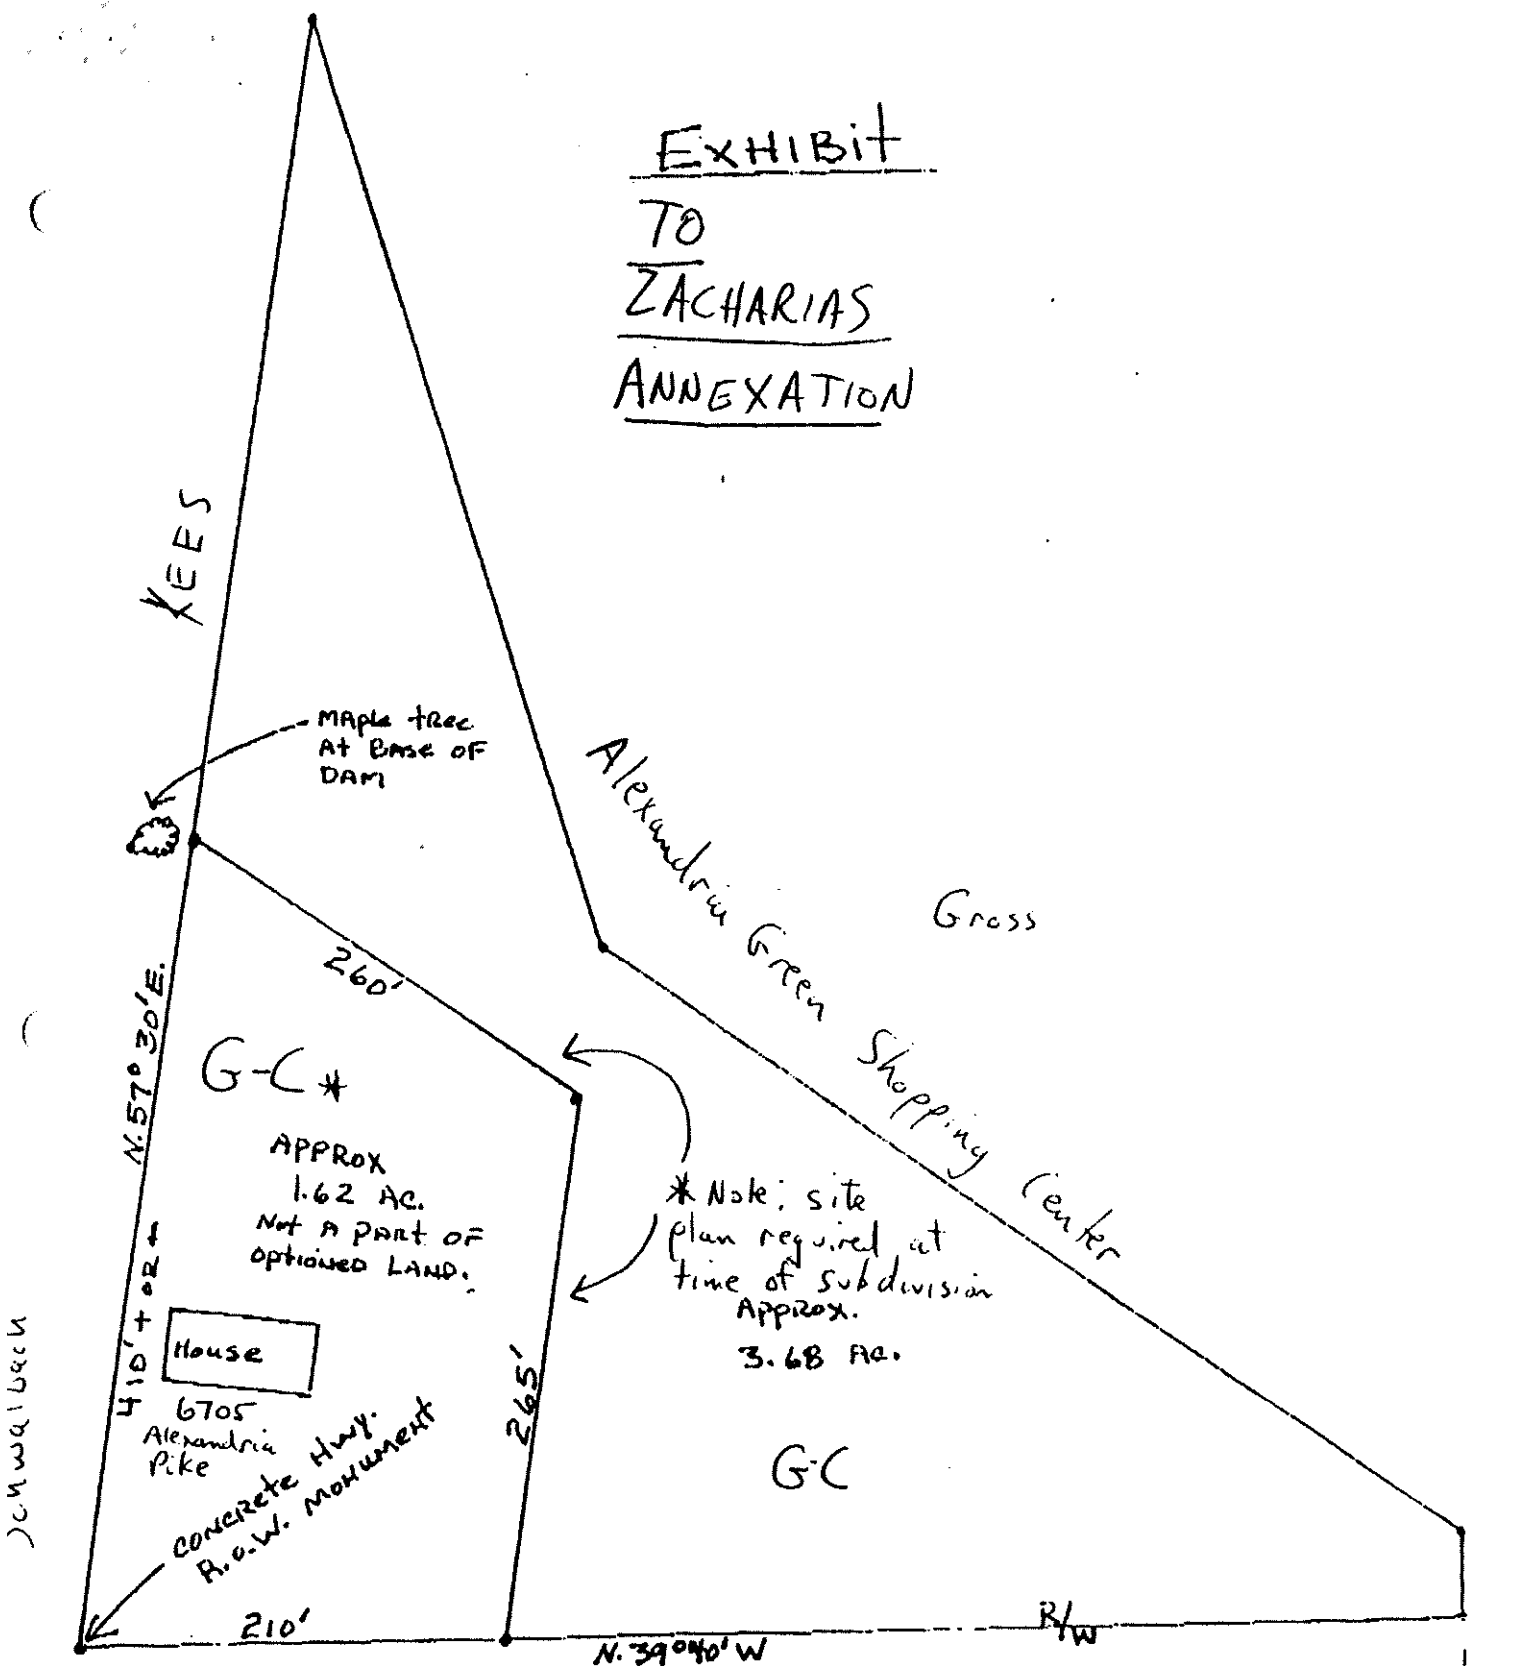 EXHIBit
TO
ZACHARIAS
ANNEXATION
KEES
MAple tRee
At BASE OF
DAM
Alexandria Green Shopping Center
Gross
260'
N.57° 30'E.
G-C *
APPROX
1.62 AC.
Not A PART OF
OPTIONED LAND.
* Note: site
plan required at
time of subdivision
APPROX.
3.68 AC.
410' + OR -
House
6705
Alexandria
Pike
CONCRETE HWY.
R.O.W. MONUMENT
265'
G-C
Schwalbach
210'
N.39°40'W
R/W